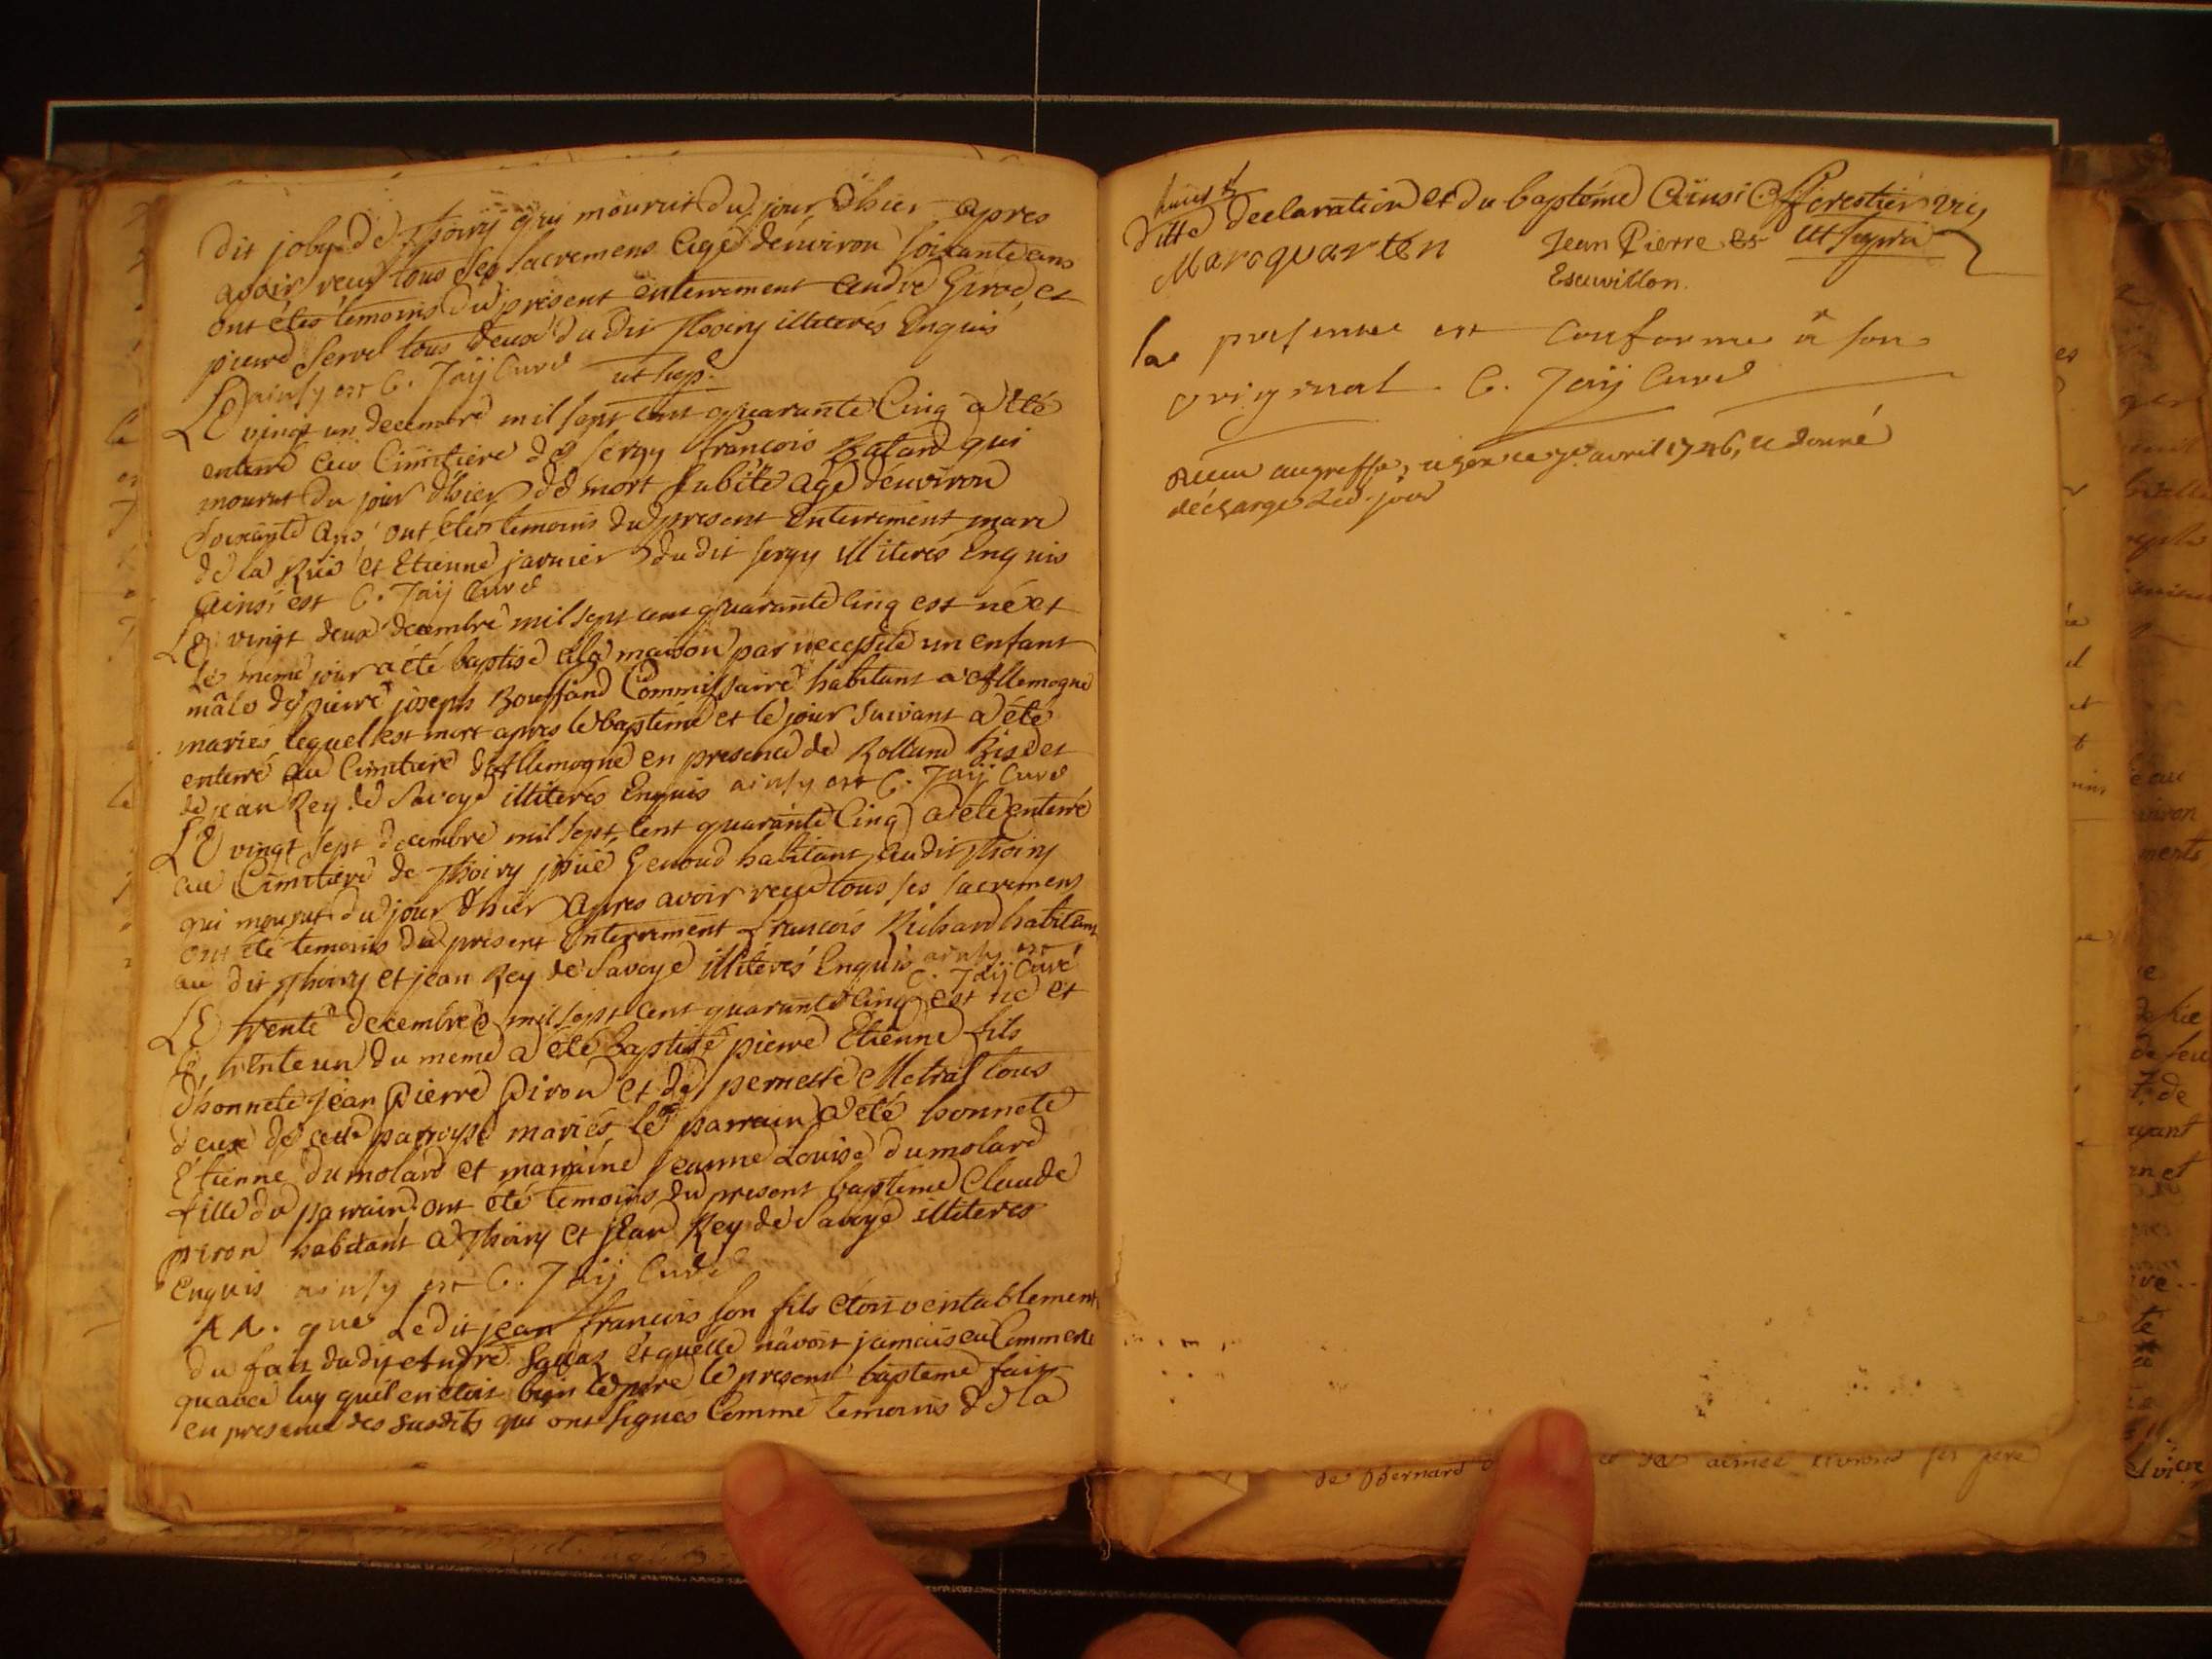 dit joly de Thoiry qui mourut du jour d'hier apres
avoir receu tous ses sacremens agé d'environ soixante ans
ont étés temoins du présent enterrement André Girod et
pierre Servel tous deux du dit Thoiry illiterés Enquis
ainsy est C. Jaÿ Curé ut sup.
LE vingt un decembre mil sept cent quarante Cinq a été
enterré au Cimitiere de Sergy françois Batard qui
mourut du jour d'hier de mort subite agé d'environ
soixante ans ont étés temoins du present Enterrement marc
de la Rüe et Etienne javnier du dit Sergy illiterés Enquis
Ainsi est C. Jaÿ Curé
LE vingt deux decembre mil sept cent quarante cinq est né et
le meme jour a été baptisé a la maison par necessité un enfant
mâle de pierre joseph Bouffand Commissaire habitant a Allemogne
mariés lequel est mort apres le baptéme et le jour suivant a été
enterré au Cimitiere d'Allemogne en presence de Rolland Bizet
de jean Rey de Savoye illiterés Enquis ainsy est C. Jaÿ Curé
LE vingt sept decembre mil sept cent quarante Cinq a été enterré
au Cimitiére de Thoiry Genoud habitant audit Thoiry
qui mourut du jour d'hier apres avoir receu tous ses sacremens
ont été temoins du present Enterrement francois Richard habitant
au dit Thoiry et jean Rey de Savoye illiterés Enquis ainsy est
C. Jaÿ Curé
LE trente decembre mil sept cent quarante cinq est né et
le trente un du meme a été baptisé pierre Etienne fils
d'honnete Jean Pierre Piron et de pernette Metral tous
deux de cette parroysse mariés le parrain a été honnete
Etienne dumolard et marraine jeanne Louise dumolard
fille du parrain ont été temoins du present baptême Claude
piron habitant a Thoiry et jean Rey de Savoye illiteres
Enquis ainsy est C. Jaÿ Curé
AA. que Ledit jean francois son fils étoit veritablement
du fait dudit André et qu'elle n'avoit jamais eu Commerce
qu'avec luy quil en etoit bien le pere le present baptême fait
en presence des susdits qui ont signés Comme temoins de la
ditte declaration et du baptéme Ainsi Fforestier vic
Maroquarten Jean Pierre es ut supra
Escuvillon.
la presente est Conforme a son
original. C. Jaÿ Curé
Receu au greffe, a gex ce 7e. avril 1746, et donné
décharge Led. jour